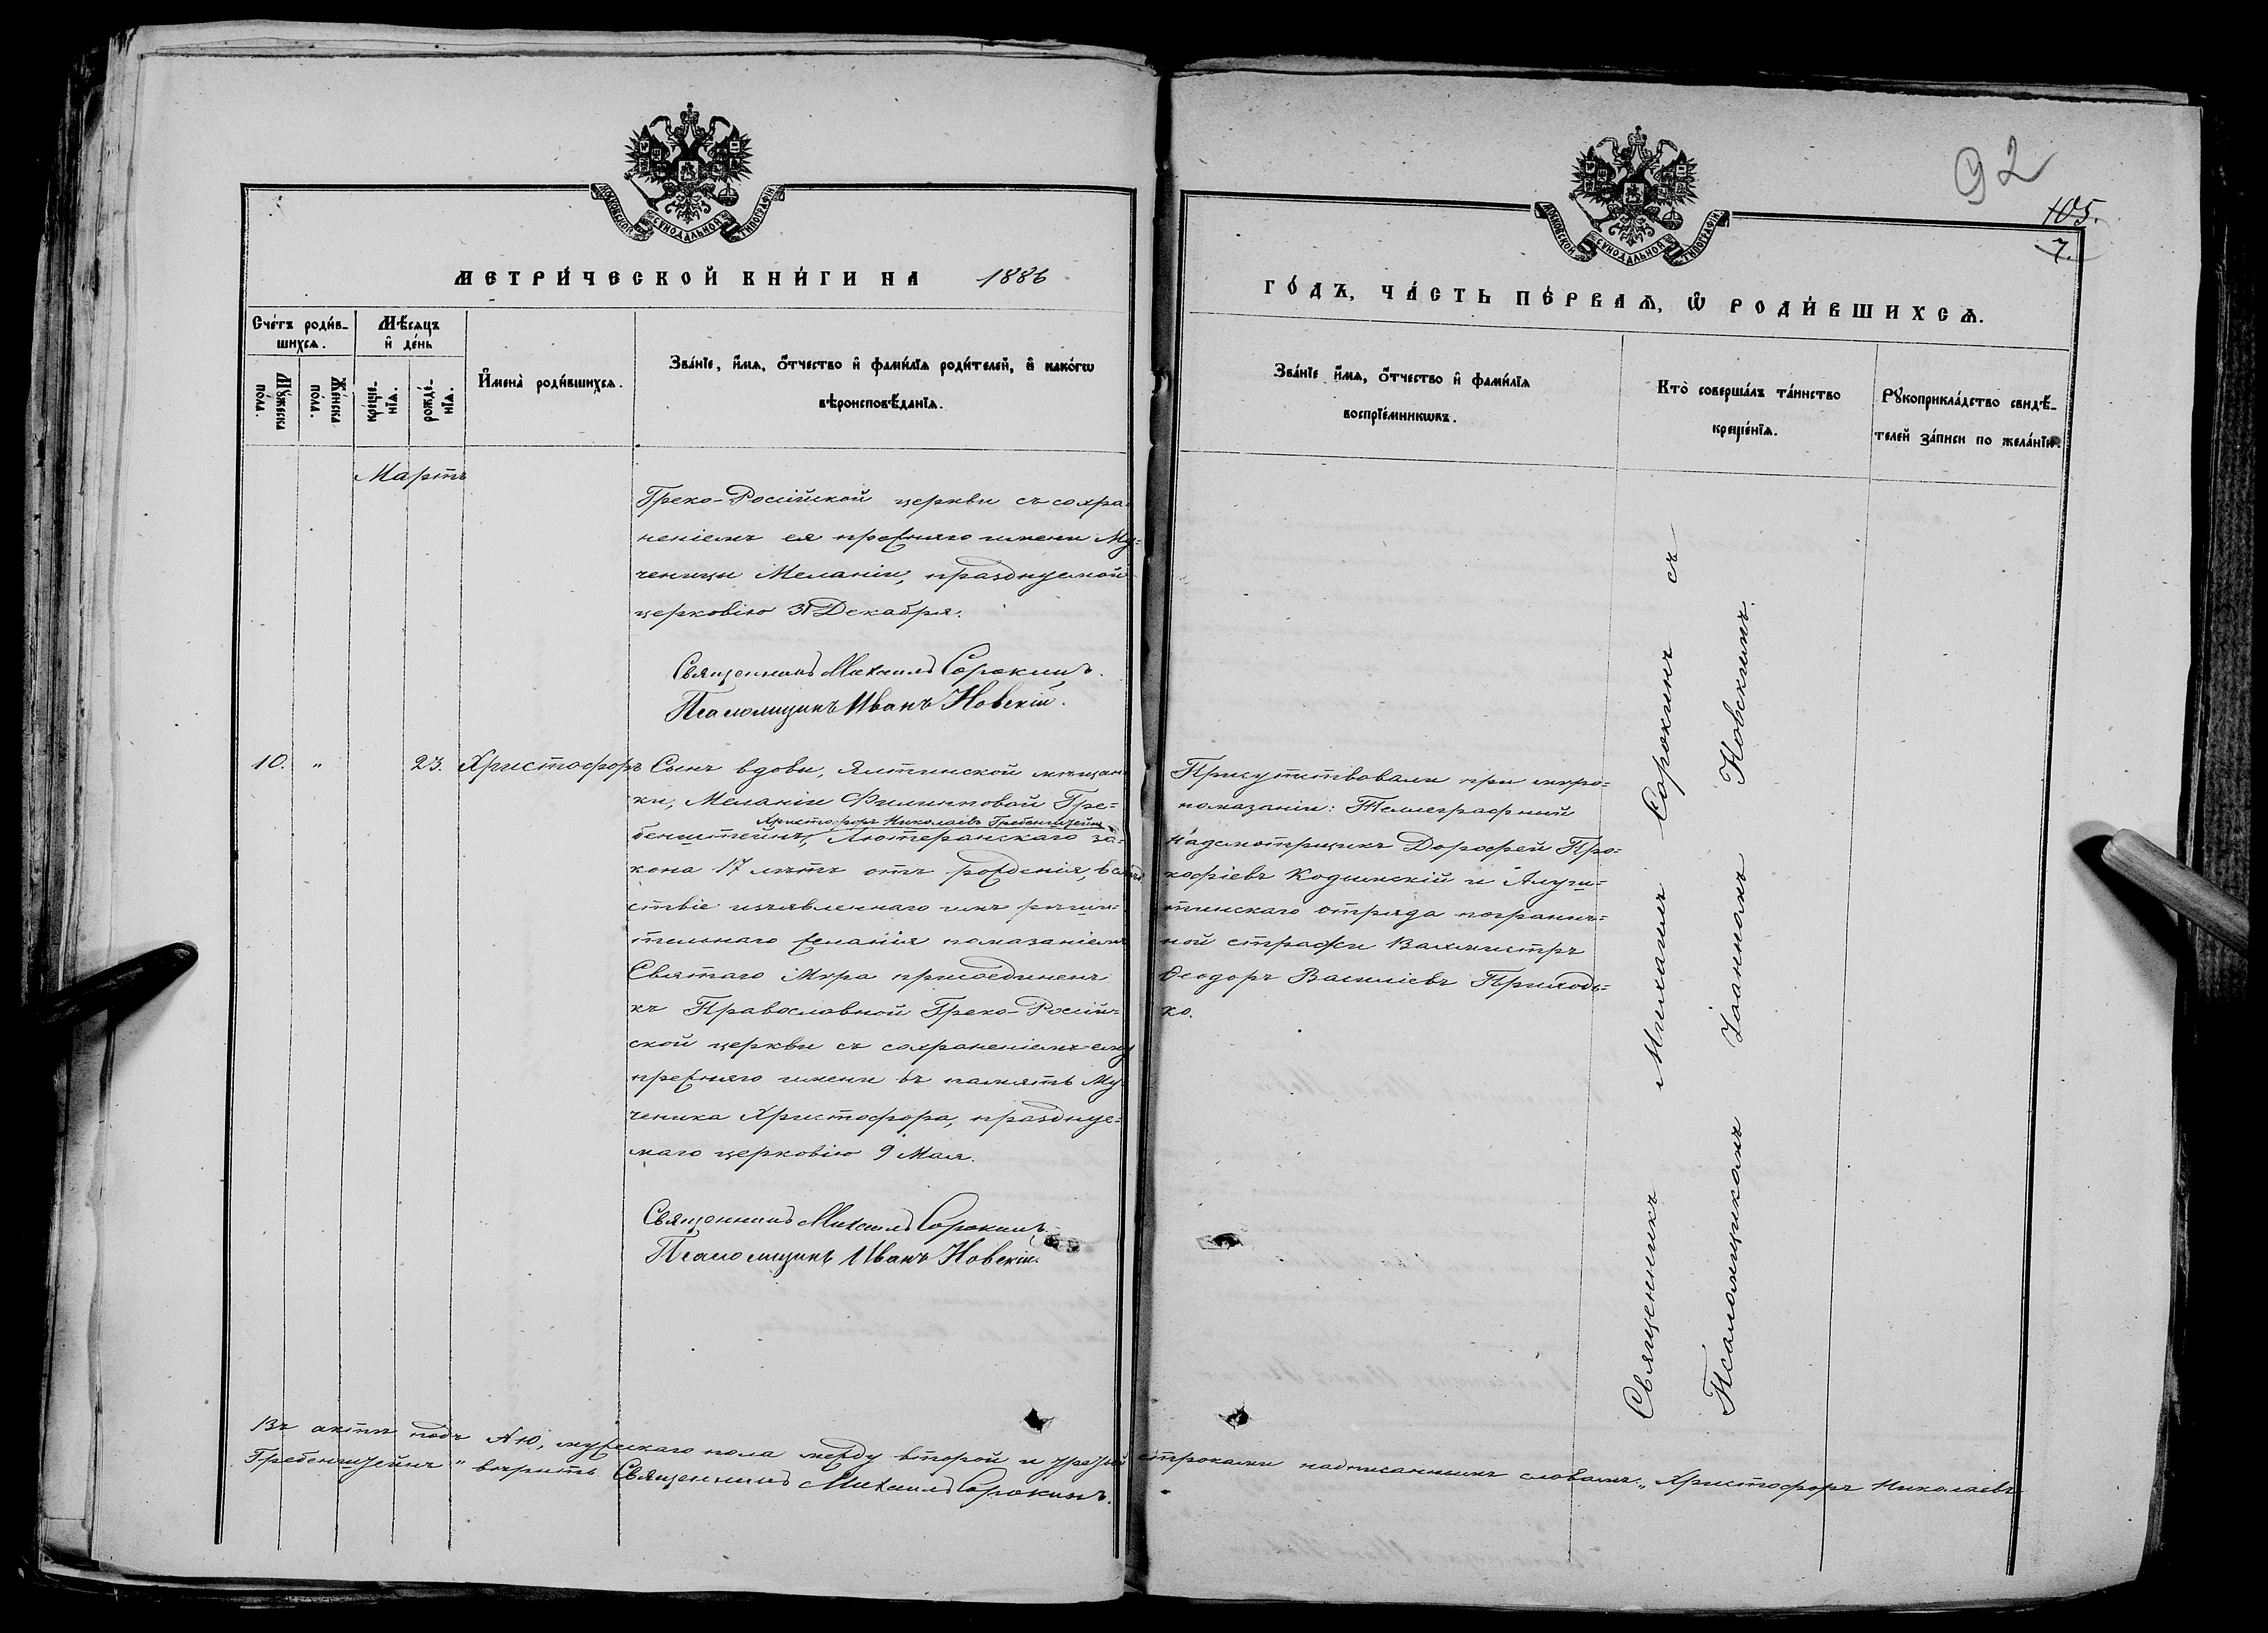 МОСКОВСКОЙ СѴНОДАЛЬНОЙ ТИПОГРАФІИ
МЕТРИ́ЧЕСКОЙ КНИ́ГИ НА 1886
Сче́тъ роди́в-
шихсѧ.
Мѣ́сѧцъ
и҆ де́нь
И҆мена̀ роди́вшихсѧ.
Зва́нїе, и҆́мѧ, о҆́тчество и҆ фами́лїѧ роди́телей, и҆ како́гѡ
вѣроисповѣ́данїѧ.
Мꙋ́жеска
по́ла.
Же́нска
по́ла.
креще́-
нїѧ.
рожде́-
нїѧ.
Мартъ
Греко-Россійской церкви съ сохра-
неніемъ ея прежняго имени Му-
ченицы Меланіи, празднуемой
церковію 31 Декабря.
Священникъ Михаилъ Сорокинъ.
Псаломщикъ Иванъ Новскій.
10. " 23. Христофоръ Сынъ вдовы, Ялтинской мѣщан-
ки, Меланіи Филипповой Гре-
Христофоръ Николаевъ Гребенштейнъ
бенштейнъ, Лютеранскаго за-
кона 17 лѣтъ отъ рожденія, вслѣд-
ствіе изъявленнаго имъ рѣши-
тельнаго желанія помазаніемъ
Святаго Мѵра присоединенъ
къ Православной Греко-Россій-
ской церкви съ сохраненіемъ ему
прежняго имени въ память Му-
ченика Христофора, празднуе-
маго церковію 9 Мая.
Священникъ Михаилъ Сорокинъ.
Псаломщикъ Иванъ Новскій.
92
105.
7.
МОСКОВСКОЙ СѴНОДАЛЬНОЙ ТИПОГРАФІИ
ГО́ДЪ, ЧА́СТЬ ПЕ́РВАѦ, Ѡ҆ РОДИ́ВШИХСѦ.
Зва́нїе и҆́мѧ, о҆́тчество и҆ фами́лїѧ
воспрїе́мникѡвъ.
Кто̀ соверша́лъ та́инство
креще́нїѧ.
Рꙋкоприкла́дство свидѣ́-
телей за́писи по жела́нїю.
Присутствовали при мѵро-
помазаніи: Телеграфный
надсмотрщикъ Дорофей Про-
кофіевъ Кодымскій и Алуш-
тинскаго отряда погранич-
ной стражи Вахмистръ
Ѳеодоръ Василіевъ Приходь-
ко.
Священникъ Михаилъ Сорокинъ съ
Псаломщикомъ Іоанномъ Новскимъ.
Въ актѣ подъ №10, мужескаго пола между второй и третьей строками надписаннымъ словамъ: "Христофоръ Николаевъ
Гребенштейнъ" вѣрить Священникъ Михаилъ Сорокинъ.